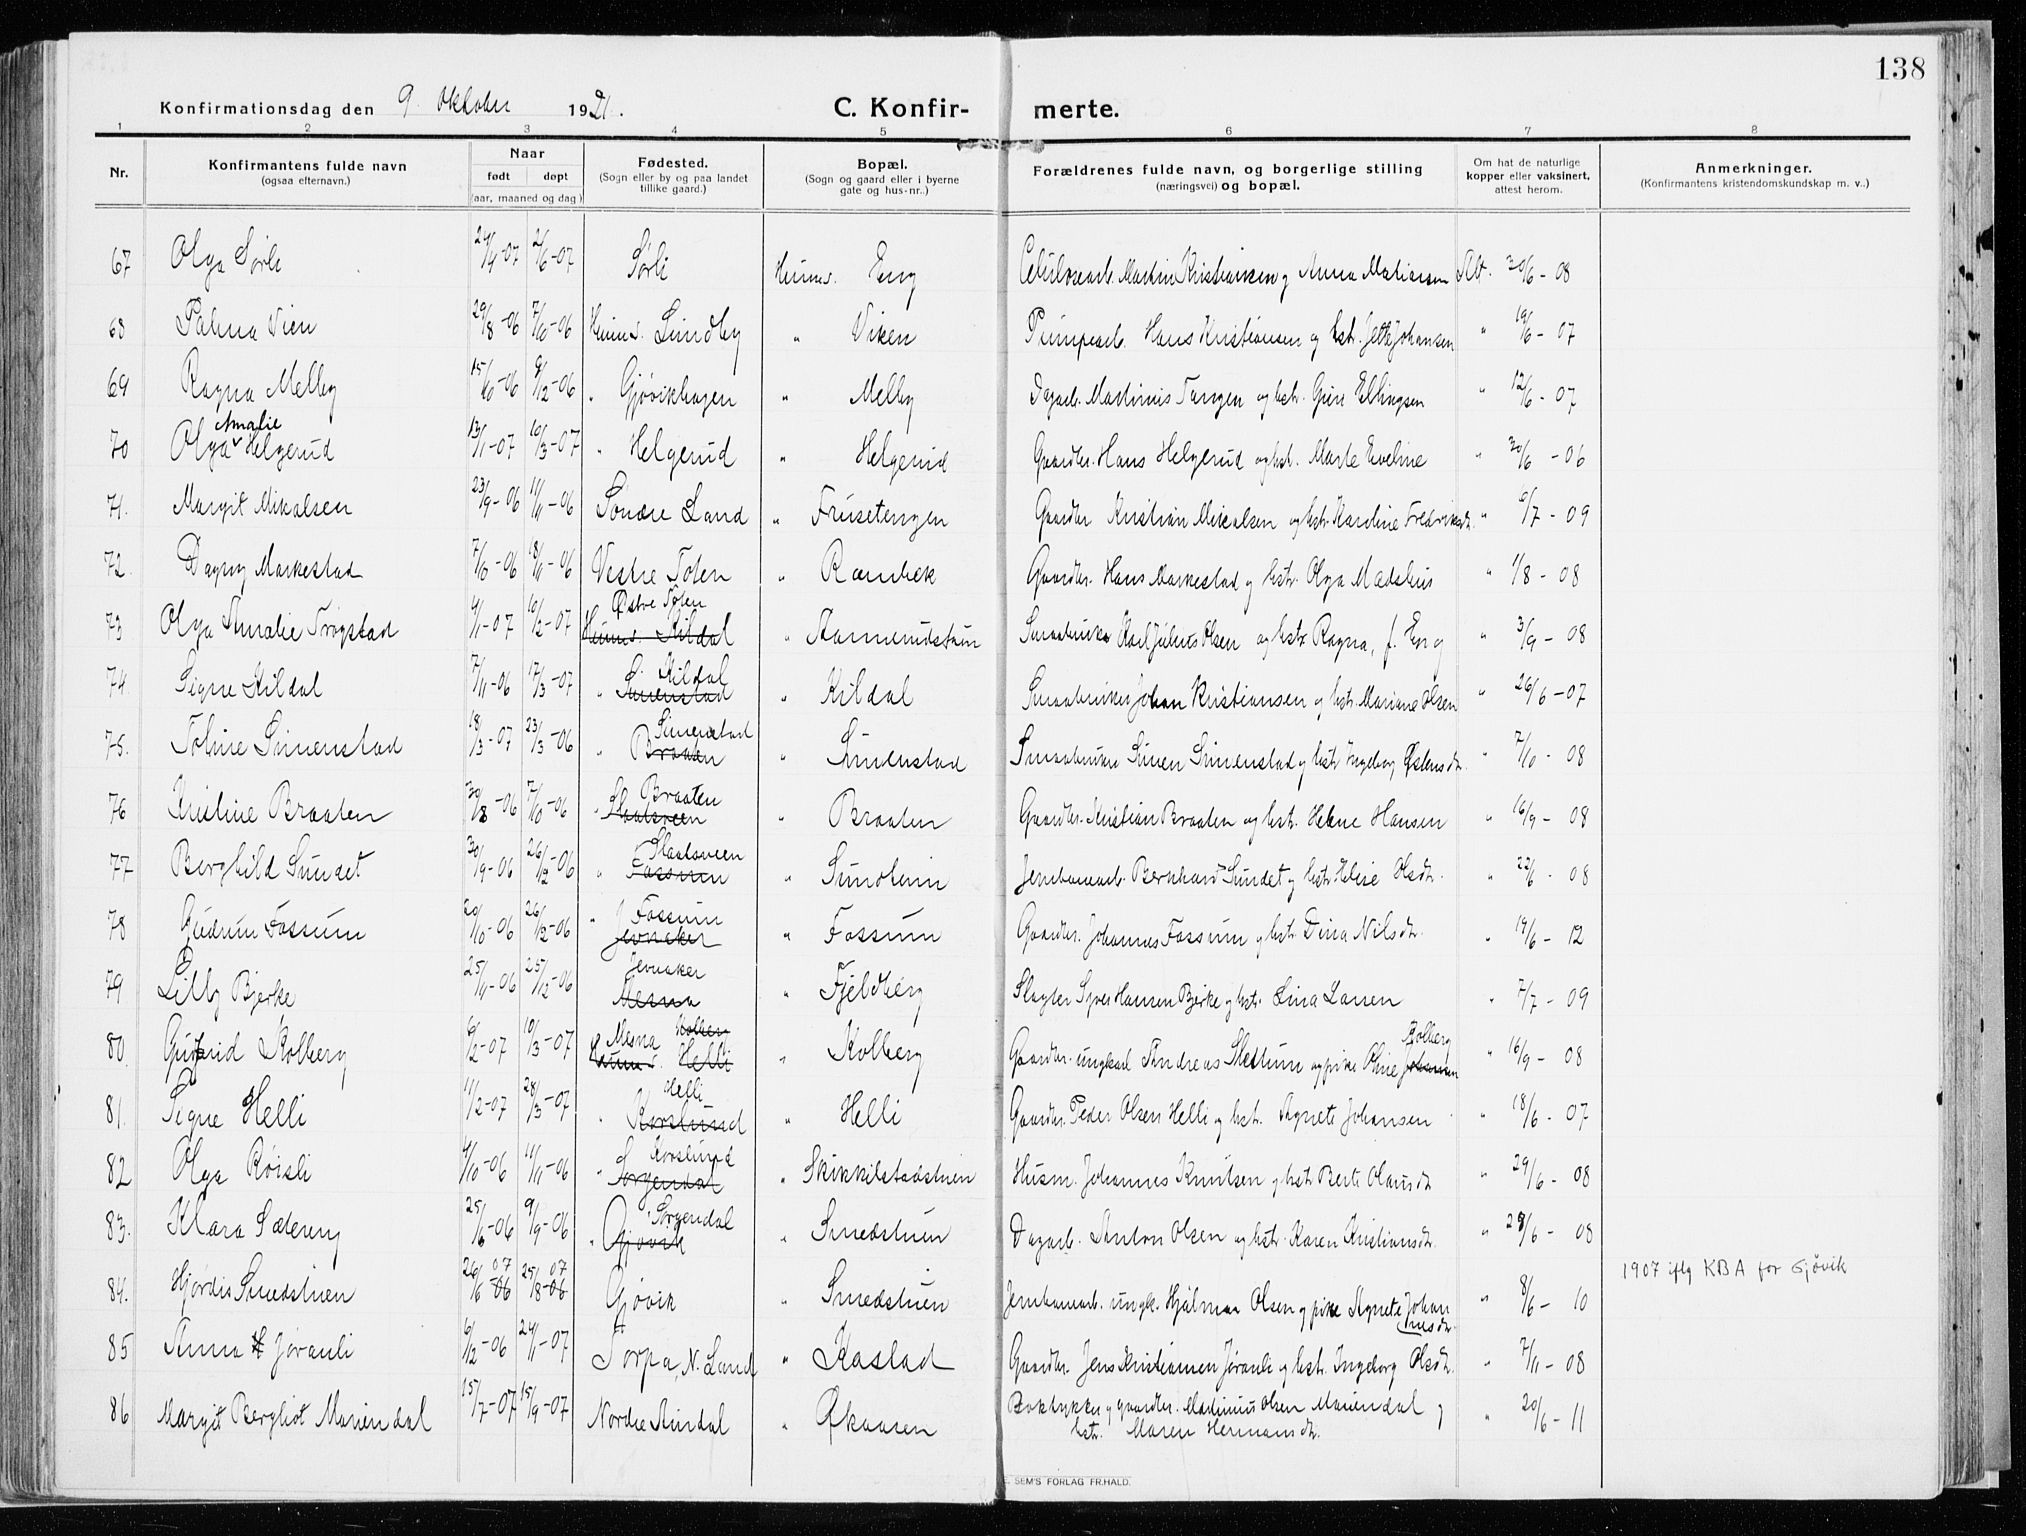 138
Konfirmationsdag den 9. Oktober 1921.
C. Konfir- merte.
1 2 3 4 5 6 7 8
Nr. Konfirmantens fulde navn (ogsaa efternavn.) Naar født døpt (aar, maaned og dag) Fødested. (Sogn eller by og paa landet tillike gaard.) Bopæl. (Sogn og gaard eller i byerne gate og hus-nr.) Forældrenes fulde navn, og borgerlige stilling (næringsvei) og bopæl. Om hat de naturlige kopper eller vaksinert, attest herom. Anmerkninger. (Konfirmantens kristendomskundskap m. v.)
67 Olga Sørli 24/4-07 2/6-07 Sørli Hunns. Eng Celulosearb. Martin Kristiansen og Anna Matiesen Att. 30/6-08
68 Palma Vien 29/8-06 7/10-06 Hunns. Sundby " Viken Pumpearb. Hans Kristiansen og hstr. Jette Johansen " 19/6-07
69 Ragna Melby 15/10-06 9/12-06 " Gjøvikhagen " Melby Dagarb. Martinus Tangen og hstr. Guri Ellingsen " 12/6-07
70 Olga Amalie Helgerud 13/1-07 10/3-07 " Helgerud " Helgerud Gaardbr. Hans Helgerud og hst. Marte Eveline " 20/6-06
71. Margit Mikalsen 23/9-06 11/11-06 Søndre Land " Frusetengen Gaardbr. Kristian Mikalsen og hstr. Karoline Fredriksdtr. " 6/7-09
72. Dagny Markestad 7/10-06 18/11-06 Vestre Toten " Rambek Gaardbr. Hans Markestad og hstr. Olga Madshus " 1/8-08
73 Olga Amalie Trøgstad 4/1-07 10/2-07 Østre Toten Hunns. Kildal " Aamerudstuen Smaabruker Karl Julius Olsen og hstr. Ragna, f. Eng " 3/9-08
74. Signe Kildal 7/11-06 17/3-07 Kildal " Simenstad " Kildal Smaabruker Johan Kristiansen og hstr. Mariane Olsen " 26/6-07
75. Toline Simenstad 18/3-07 23/3-06 Simenstad " Braaten " Simenstad Smaabruker Simen Simenstad og hstr. Ingeborg Østensdtr. " 7/10-08
76 Kristine Braaten 30/8-06 7/10-06 Braaten " Slaatsveen " Braaten Gaardbr. Kristian Braaten og hst. Helene Hansen " 16/9-08
77 Borghild Sundet 30/9-06 26/12-06 Slaatsveen " Fossum " Jernbanearb. Bernhard Sundet og hstr. Helise Olsdtr. " 22/6-08
78 Gudrun Fossum 20/10-06 26/12-06 " Fossum Jevnaker " Fossum Gaardbr. Johannes Fossum og hstr. Dina Nilsdtr. " 19/6-12
79 Lilly Bjerke 25/11-06 25/12-06 Jevnaker Mesna " Fjeldberg Slagter Syver Hansen Bjerke og hstr. Lina Larsen " 7/7-09
80. Gudrid Kolberg 6/2-07 10/3-07 Mesna Kolberg Hunns. Helli " Kolberg Gaardbr. ungkarl Andreas Slettum og pike Oline Johansen Kolberg " 16/9-08
81. Signe Helli 11/2-07 28/3-07 Helli " Korslund " Helli Gaardbr. Peder Olsen Helli og hst. Agnete Johansen " 18/6-07
82 Olga Røisli 4/10-06 11/11-06 Korslund " Sorgendal " Skikkilstadstuen Husm. Johannes Knutsen og hstr. Berte Olausdtr. " 29/6-08
83. Klara Sætereng 25/6-06 9/9-06 Sorgendal " Gjøvik " Smedstuen Dagarb. Anton Olsen og hstr. Karen Kristiansdtr. " 28/6-08
84. Hjørdis Smedstuen 26/6-06 07 25/8-06 07 Gjøvik " Smedstuen Jernbanearb. ungk. Hjalmar Olsen og pike Agnete Johannesdtr. " 8/6-10 1907 iflg KBA for Gjøvik
85 Anna Jøranli 6/12-06 24/1-07 Torpa, N. Land " Kastad Gaardbr. Jens Kristiansen Jøranli og hstr. Ingeborg Olsdtr. " 7/11-08
86 Margit Bergliot Mariendal 15/7-07 15/9-07 Nordre Aurdal " Økaasen Boktrykker og gaardbr. Martinius Olsen Mariendal og
hstr. Maren Hermansdtr. " 20/6-11
E. SEM'S FORLAG FR.HALD.